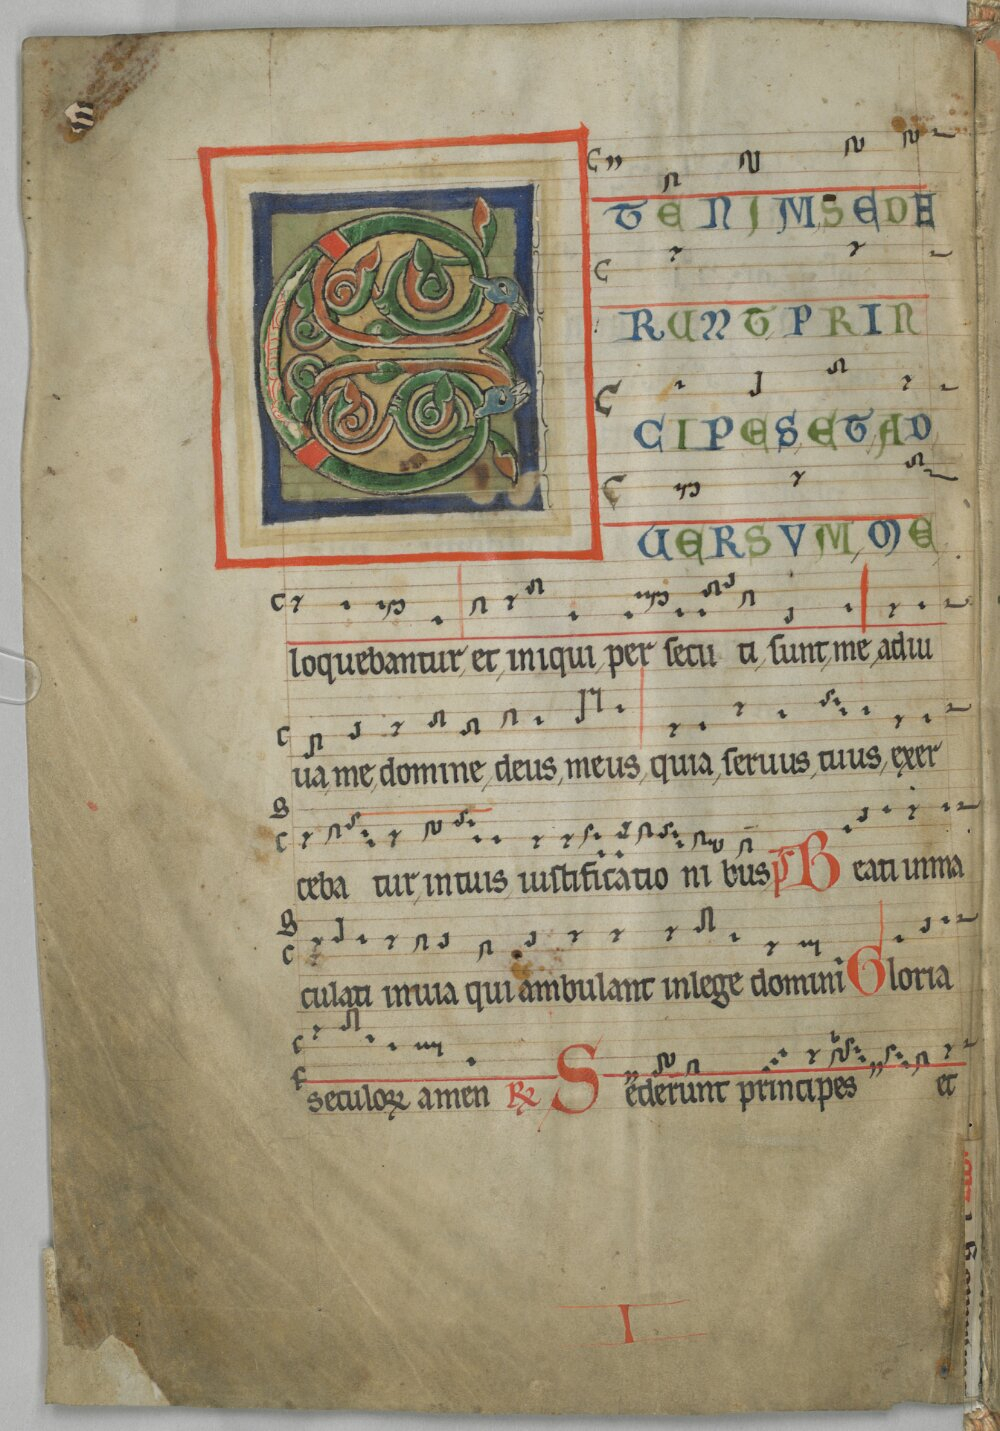 E TENIMSEDE
RUNT PRIN
CIPES ET AD
UERSVM ME
loquebantur et iniqui persecuti sunt me adiu
ua me domine deus meus quia seruus tuus exer
ceba tur in tuis iustificatio ni bus ps Beati inma
culati inuia qui ambulant inlege domini Gloria
seculoꝝ amen ℟ Sederunt principes et
I